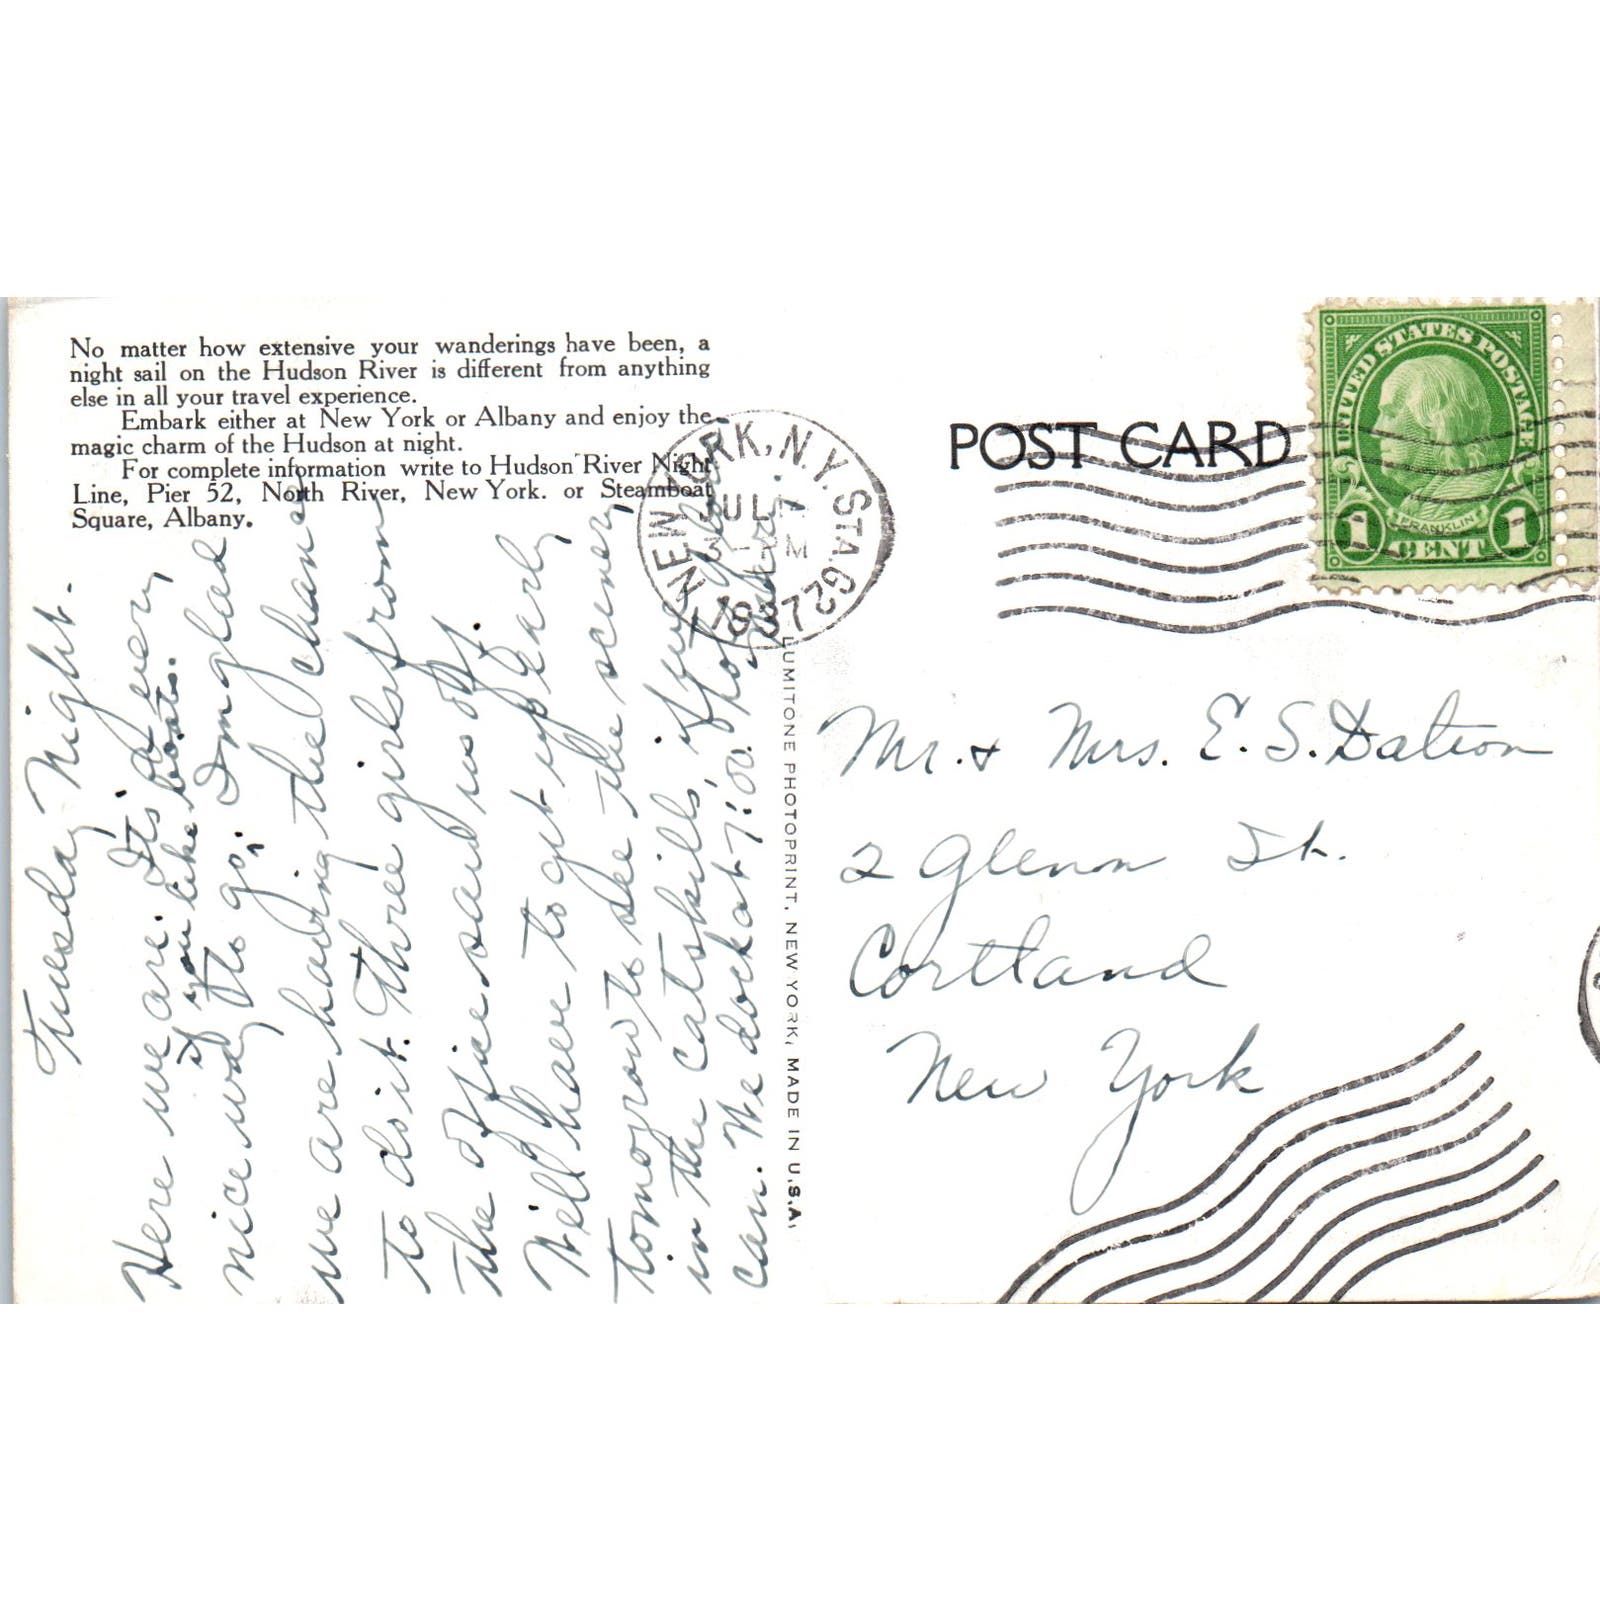 No matter how extensive your wanderings have been, a
night sail on the Hudson River is different from anything
else in all your travel experience.
Embark either at New York or Albany and enjoy the
magic charm of the Hudson at night.
For complete information write to Hudson River Night
Line, Pier 52, North River, New York. or Steamboat
Square, Albany.
Tuesday Night.
Here we are. It's a very
if you like boats.
nice way to go, I'm glad
we are having the chance
to do it. Three girls from
the office saw us off.
Will have to get up early
tomorrow to see the scenery
in the Catskills, if we
can. We dock at 7:00.
NEW YORK, N.Y. STA. G22
JUL
3-PM
1937
LUMITONE PHOTOPRINT, NEW YORK, MADE IN U.S.A.
POST CARD
UNITED STATES POSTAGE
FRANKLIN
1 CENT 1
Mr. & Mrs. E. S. Dalson
2 Glenn St.
Cortland
New York